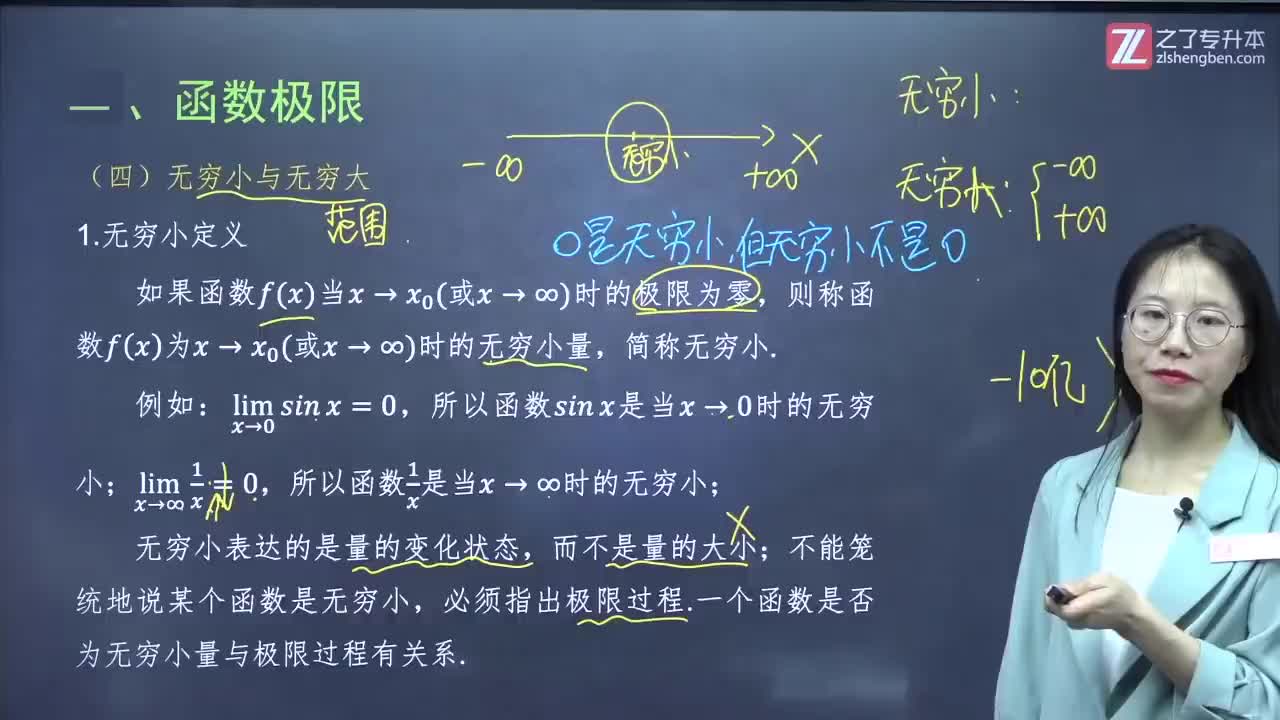 之了专升本
zlshengben.com
一、函数极限
无穷小：
-∞ 无穷小 +∞ X
（四）无穷小与无穷大
无穷大：{ -∞ +∞
范围
1.无穷小定义
0是无穷小,但无穷小不是0
如果函数f(x)当x→x₀(或x→∞)时的极限为零，则称函
数f(x)为x→x₀(或x→∞)时的无穷小量，简称无穷小.
-10亿
例如：lim x→0 sin x=0，所以函数sin x是当x→0时的无穷
小；lim x→∞ 1/x=0，所以函数1/x是当x→∞时的无穷小；
无穷小表达的是量的变化状态，而不是量的大小；不能笼
统地说某个函数是无穷小，必须指出极限过程.一个函数是否
为无穷小量与极限过程有关系.